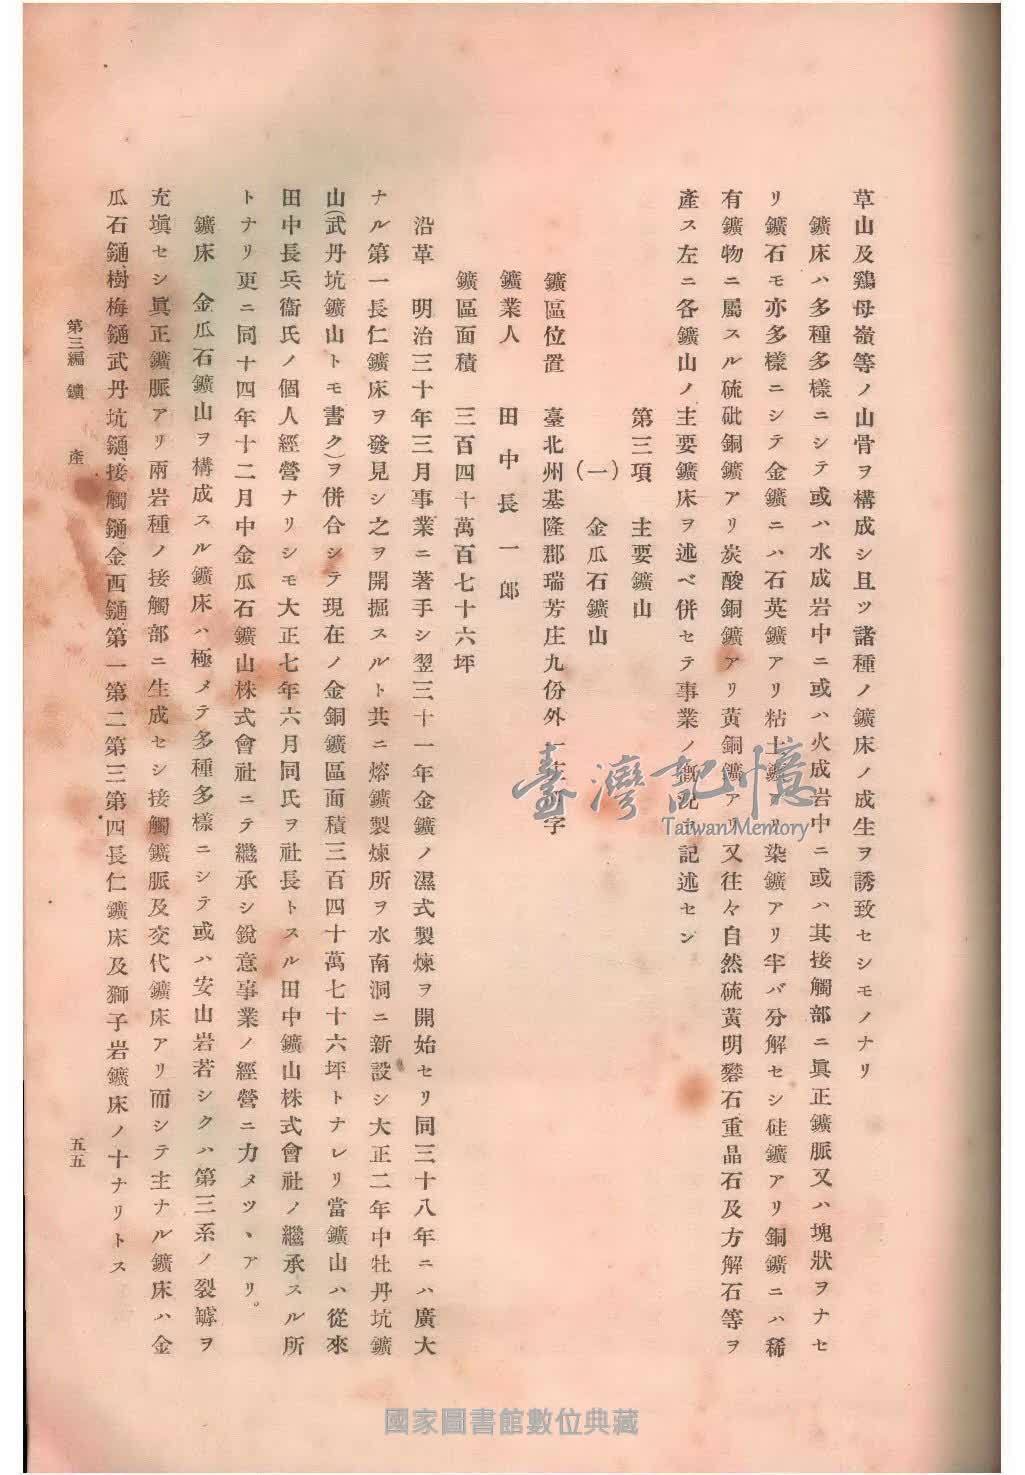 草山及鷄母嶺等ノ山骨ヲ構成シ且ツ諸種ノ鑛床ノ成生ヲ誘致セシモノナリ
鑛床ハ多種多樣ニシテ或ハ水成岩中ニ或ハ火成岩中ニ或ハ其接觸部ニ眞正鑛脈又ハ塊狀ヲナセ
リ鑛石モ亦多樣ニシテ金鑛ニハ石英鑛アリ粘土鑛アリ染鑛アリ半バ分解セシ硅鑛アリ銅鑛ニハ稀
有鑛物ニ屬スル硫砒銅鑛アリ炭酸銅鑛アリ黃銅鑛アリ又往々自然硫黃明礬石重晶石及方解石等ヲ
產ス左ニ各鑛山ノ主要鑛床ヲ述ベ併セテ事業ノ槪況ヲ記述セン
第三項 主要鑛山
(一) 金瓜石鑛山
鑛區位置 臺北州基隆郡瑞芳庄九份外一庄 字
鑛業人 田中長一郎
鑛區面積 三百四十萬百七十六坪
沿革 明治三十年三月事業ニ著手シ翌三十一年金鑛ノ濕式製煉ヲ開始セリ同三十八年ニハ廣大
ナル第一長仁鑛床ヲ發見シ之ヲ開掘スルト共ニ熔鑛製煉所ヲ水南洞ニ新設シ大正二年中牡丹坑鑛
山(武丹坑鑛山トモ書ク)ヲ併合シテ現在ノ金銅鑛區面積三百四十萬七十六坪トナレリ當鑛山ハ從來
田中長兵衞氏ノ個人經營ナリシモ大正七年六月同氏ヲ社長トスル田中鑛山株式會社ノ繼承スル所
トナリ更ニ同十四年十二月中金瓜石鑛山株式會社ニテ繼承シ銳意事業ノ經營ニ力メツヽアリ。
鑛床 金瓜石鑛山ヲ構成スル鑛床ハ極メテ多種多樣ニシテ或ハ安山岩若シクハ第三系ノ裂罅ヲ
充塡セシ眞正鑛脈アリ兩岩種ノ接觸部ニ生成セシ接觸鑛脈及交代鑛床アリ而シテ主ナル鑛床ハ金
瓜石鏈、樹梅鏈武丹坑鏈、接觸鏈金西鏈第一第二第三第四長仁鑛床及獅子岩鑛床ノ十ナリトス
第三編 鑛 產
五五
臺灣記憶
Taiwan Memory
國家圖書館數位典藏